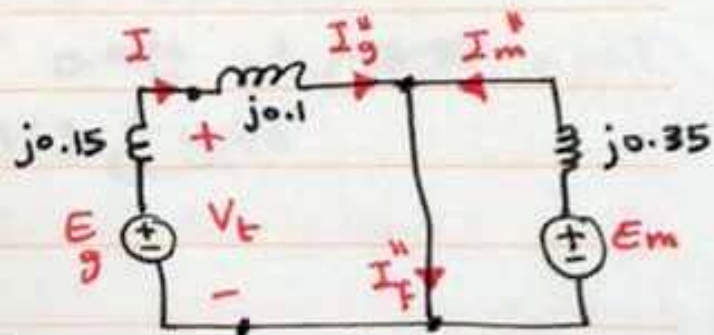 I
I"g
I"m
j0.1
j0.15
+
j0.35
Eg
Vt
Em
I"f
-